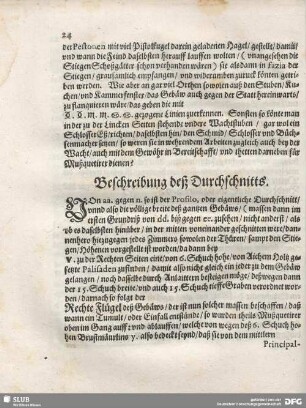 24
der Pestonen mit viel Pistolkugel darein geladenen Hagel / gestelt / damit /
und wann die Feind daselbsten herauff lauffen wolten / (unangesehen die
Stiegen Schoßgätter schon verhanden wären) sie alsdann in fazia der
Stiegen / grausamlich empfangen / und widerumben zuruck könten getri-
ben werden. Wie aber an gar viel Orthen sowoln auß den Stuben / Ku-
chen / und Kammerfenster / das Gebäw auch gegen der Statt hereinwarts /
zu flanquieren wäre / das geben die mit
gezogene Linien zuerkennen. Sonsten so könte man
in der zu der Lincken Seiten stehende vndere Wachstuben / gar woln
Schlosser Eß / richten / daselbsten hin / den Schmid / Schlosser und Büch-
senmacher setzen / so weren sie in wehrendem Arbeiten zugleich auch bey der
Wacht / auch mit dem Gewöhr in Bereitschafft / und theten darneben für
Mußquetirer dienen!
Beschreibung deß Durchschnitts.
VOn aa. gegen n. so ist der Profilo, oder eigentliche Durchschnitt /
unnd also die völlige breite deß gantzen Gebäws / (massen dann im
ersten Grundriß von dd. biß gegen ee. zusehen / nicht anderst / als
ob es daselbsten hinüber / in der mitten voneinander geschnitten were / dan-
nenhero hiezugegen jedes Zimmers sowolen der Thüren / sampt den Stie-
gen / Höhenen vorgestelt ist worden / da dann bey
V. zu der Rechten Seiten eint / von 6. Schuch hohe / von Aichem Holtz ge-
setzte Palisaden zufinden / damit also nicht gleich ein jeder zu dem Gebäw
gelangen / noch daselbst durch Anlauttern besteigen möge / deßwegen dann
der 15. Schuch breite / und auch 15. Schuch tieffe Graben verordnet wor-
den / darnach so folgt der
Rechte Flügel deß Gebäws / der ist nun solcher massen beschaffen / daß
wann ein Tumult / oder Einfall entstände / so warden theils Mußquetirer
oben im Gang auff: und ablauffen / welche von wegen deß 6. Schuch ho-
hen Brustmäurlins y. also bedeckt seynd / daß sie von dem mittlern
Principal-
SLUB